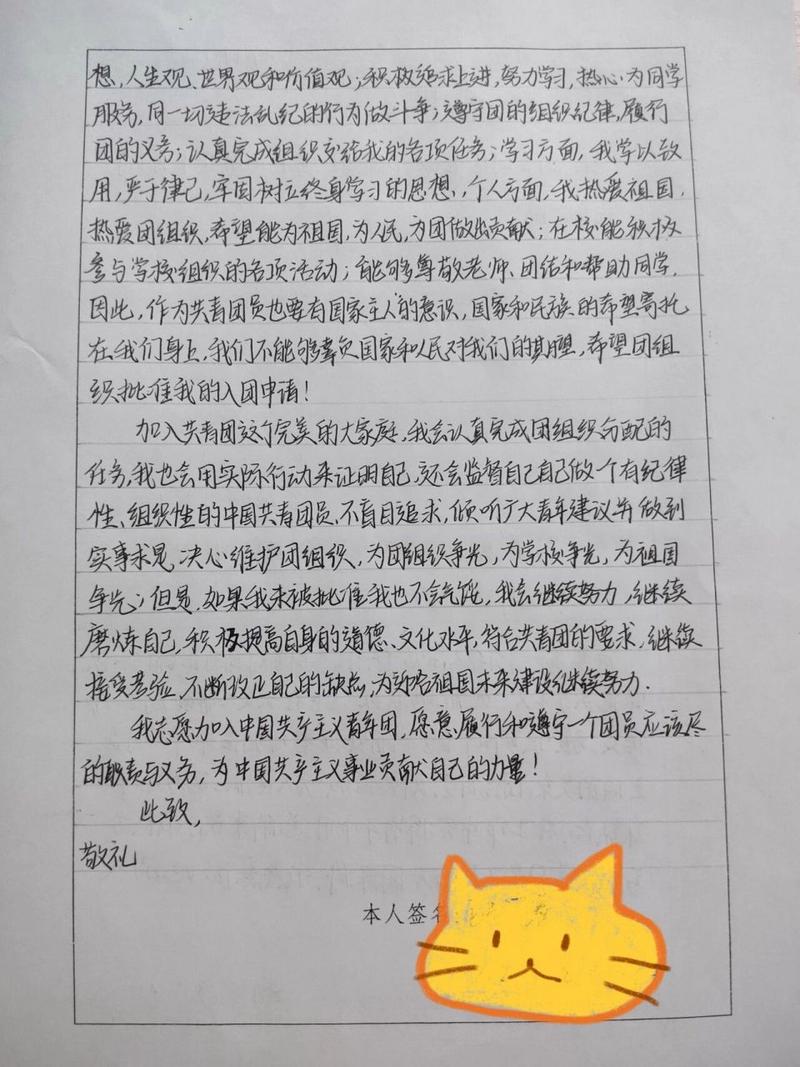 想,人生观、世界观和价值观;积极追求上进,努力学习,热心为同学
服务,同一切违法乱纪的行为做斗争;遵守团的组织纪律,履行
团的义务;认真完成组织交给我的各项任务;学习方面,我学以致
用,严于律己,牢固树立终身学习的思想,个人方面,我热爱祖国,
热爱团组织,希望能为祖国,为人民,为团做出贡献;在校能积极
参与学校组织的各项活动;能够尊敬老师、团结和帮助同学,
因此,作为共青团员也要有国家主人的意识,国家和民族的希望寄托
在我们身上,我们不能够辜负国家和人民对我们的期望,希望团组
织批准我的入团申请!
加入共青团这个完美的大家庭,我会认真完成团组织分配的
任务,我也会用实际行动来证明自己,还会监督自己自己做一个有纪律
性、组织性的中国共青团员、不盲目追求,倾听广大青年建议并做到
实事求是,决心维护团组织、为团组织争光,为学校争光,为祖国
争光;但是,如果我未被批准我也不会气馁,我会继续努力,继续
磨炼自己,积极提高自身的道德、文化水平,符合共青团的要求,继续
接受考验,不断改正自己的缺点,为祖国未来建设继续努力.
我志愿加入中国共产主义青年团,愿意履行和遵守一个团员应该尽
的职责与义务,为中国共产主义事业贡献自己的力量!
此致,
敬礼
本人签名